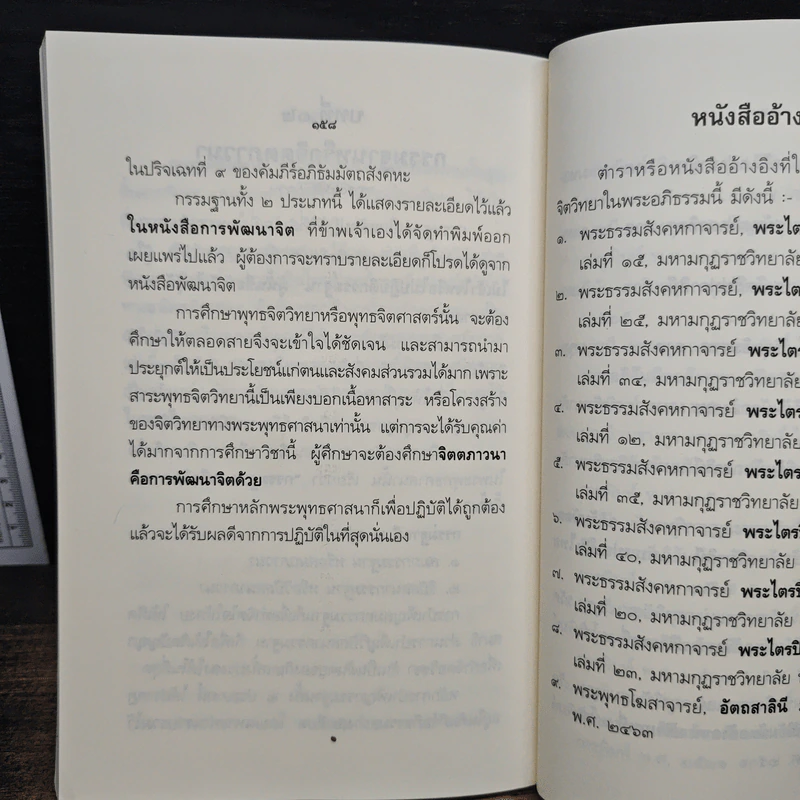 ๑๕๘
ในปริจเฉทที่ ๙ ของคัมภีร์อภิธัมมัตถสังคหะ
กรรมฐานทั้ง ๒ ประเภทนี้ ได้แสดงรายละเอียดไว้แล้ว
ในหนังสือการพัฒนาจิต ที่ข้าพเจ้าเองได้จัดทำพิมพ์ออก
เผยแพร่ไปแล้ว ผู้ต้องการจะทราบรายละเอียดก็โปรดได้ดูจาก
หนังสือพัฒนาจิต
การศึกษาพุทธจิตวิทยาหรือพุทธจิตศาสตร์นั้น จะต้อง
ศึกษาให้ตลอดสายจึงจะเข้าใจได้ชัดเจน และสามารถนำมา
ประยุกต์ให้เป็นประโยชน์แก่ตนและสังคมส่วนรวมได้มาก เพราะ
สาระพุทธจิตวิทยานี้เป็นเพียงบอกเนื้อหาสาระ หรือโครงสร้าง
ของจิตวิทยาทางพระพุทธศาสนาเท่านั้น แต่การจะได้รับคุณค่า
ได้มากจากการศึกษาวิชานี้ ผู้ศึกษาจะต้องศึกษาจิตตภาวนา
คือการพัฒนาจิตด้วย
การศึกษาหลักพระพุทธศาสนาก็เพื่อปฏิบัติได้ถูกต้อง
แล้วจะได้รับผลดีจากการปฏิบัติในที่สุดนั่นเอง
หนังสืออ้าง
ตำราหรือหนังสืออ้างอิงที่ใ
จิตวิทยาในพระอภิธรรมนี้ มีดังนี้ :-
๑. พระธรรมสังคหกาจารย์, พระไต
เล่มที่ ๑๕, มหามกุฏราชวิทยาลัย
๒. พระธรรมสังคหกาจารย์, พระไตร
เล่มที่ ๒๕, มหามกุฏราชวิทยาลัย
๓. พระธรรมสังคหกาจารย์ พระไตร
เล่มที่ ๓๔, มหามกุฏราชวิทยาลัย
๔. พระธรรมสังคหกาจารย์ พระไตร
เล่มที่ ๑๒, มหามกุฏราชวิทยาลัย
๕. พระธรรมสังคหกาจารย์ พระไตร
เล่มที่ ๓๕, มหามกุฏราชวิทยาลัย
๖. พระธรรมสังคหกาจารย์ พระไตรปิ
เล่มที่ ๔๐, มหามกุฏราชวิทยาลัย
๗. พระธรรมสังคหกาจารย์ พระไตรปิ
เล่มที่ ๒๐, มหามกุฏราชวิทยาลัย
๘. พระธรรมสังคหกาจารย์ พระไตรปิ
เล่มที่ ๒๓, มหามกุฏราชวิทยาลัย
๙. พระพุทธโฆสาจารย์, อัตถสาลินี
พ.ศ. ๒๔๖๓